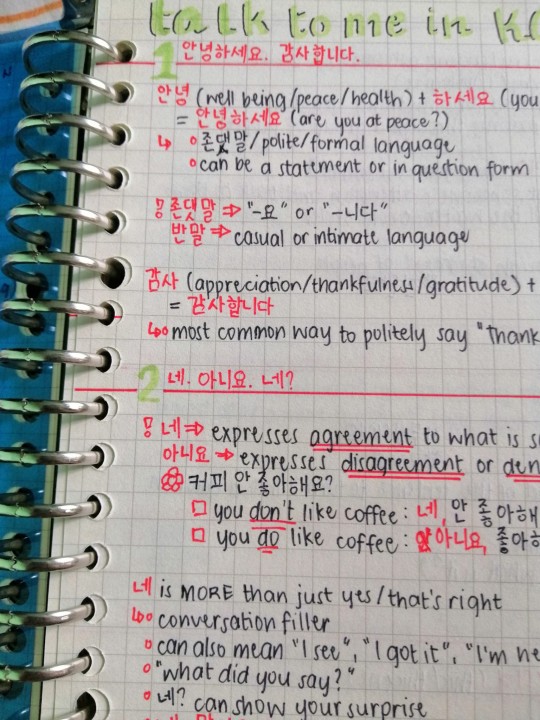 talk to me in K
1 안녕하세요. 감사합니다.
안녕 (well being/peace/health) + 하세요 (you
= 안녕하세요 (are you at peace?)
↳ 존댓말/polite/formal language
can be a statement or in question form
존댓말 ⇒ "-요" or "-니다"
반말 ⇒ casual or intimate language
감사 (appreciation/thankfulness/gratitude) +
= 감사합니다
↳ most common way to politely say "thank
2 네. 아니요. 네?
네 ⇒ expresses agreement to what is s
아니요 ⇒ expresses disagreement or den
커피 안 좋아해요?
you don't like coffee: 네, 안 좋아해
you do like coffee: 아니요, 좋아
네 is MORE than just yes/that's right
↳ conversation filler
can also mean "I see", "I got it", "I'm he
"what did you say?"
네? can show your surprise